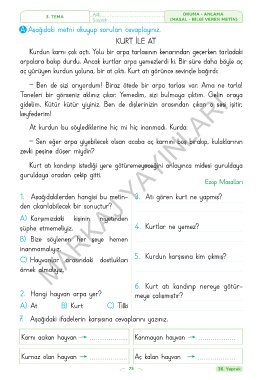 3. TEMA
OKUMA - ANLAMA
(MASAL - BİLGİ VEREN METİN)
A Aşağıdaki metni okuyup soruları cevaplayınız.
KURT İLE AT
Kurdun karnı çok açtı. Yolu bir arpa tarlasının kenarından geçerken tarladaki
arpalara bakıp durdu. Ancak kurtlar arpa yemezlerdi ki. Bir süre daha böyle aç
aç yürüyen kurdun yoluna, bir at çıktı. Kurt atı görünce sevinçle bağırdı:
– Ben de sizi arıyordum! Biraz ötede bir arpa tarlası var. Ama ne tarla!
Taneleri bir görseniz aklınız çıkar. Yemedim, sizi bulmaya çıktım. Gelin oraya
gidelim. Kütür kütür yiyiniz. Ben de dişlerinizin arasından çıkan o sesi işitir,
keyfederim!
At kurdun bu söylediklerine hiç mi hiç inanmadı. Kurda:
– Sen eğer arpa yiyebilecek olsan acaba aç karnını boş bırakıp, kulaklarının
zevki peşine düşer miydin?
Kurt atı kandırıp istediği yere götüremeyeceğini anlayınca midesi guruldaya
guruldaya oradan çekip gitti.
Ezop Masalları
1. Aşağıdakilerden hangisi bu metinden
den çıkarılabilecek bir sonuçtur?
A) Karşımızdaki kişinin niyetinden
şüphe etmemeliyiz.
B) Bize söylenen her şeye hemen
inanmamalıyız.
C) Hayvanlar arasındaki dostlukları
örnek almalıyız.
2. Hangi hayvan arpa yer?
A) At B) Kurt C) Tilki
3. Atı gören kurt ne yapmış?
4. Kurtlar ne yemez?
5. Kurdun karşısına kim çıkmış?
6. Kurt atı kandırıp nereye götürmeye
meye çalışmıştır?
7. Aşağıdaki ifadelerin karşısına cevaplarını yazınız.
Karnı acıkan hayvan
Kanmayan hayvan
Kurnaz olan hayvan
Aç kalan hayvan
75
38. Yaprak